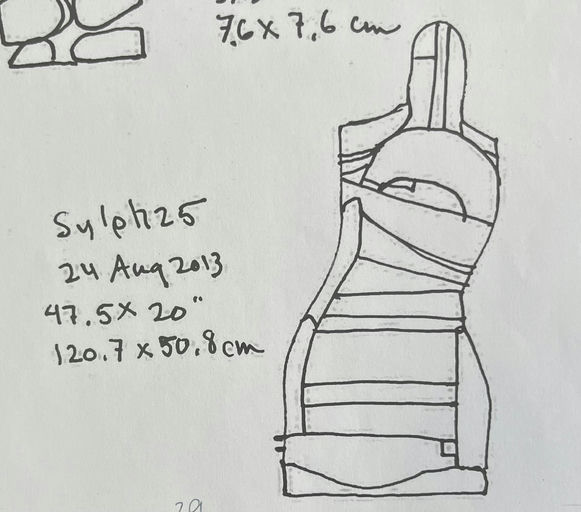 7.6 x 7.6 cm
Sylph 25
24 Aug 2013
47.5 x 20"
120.7 x 50.8 cm